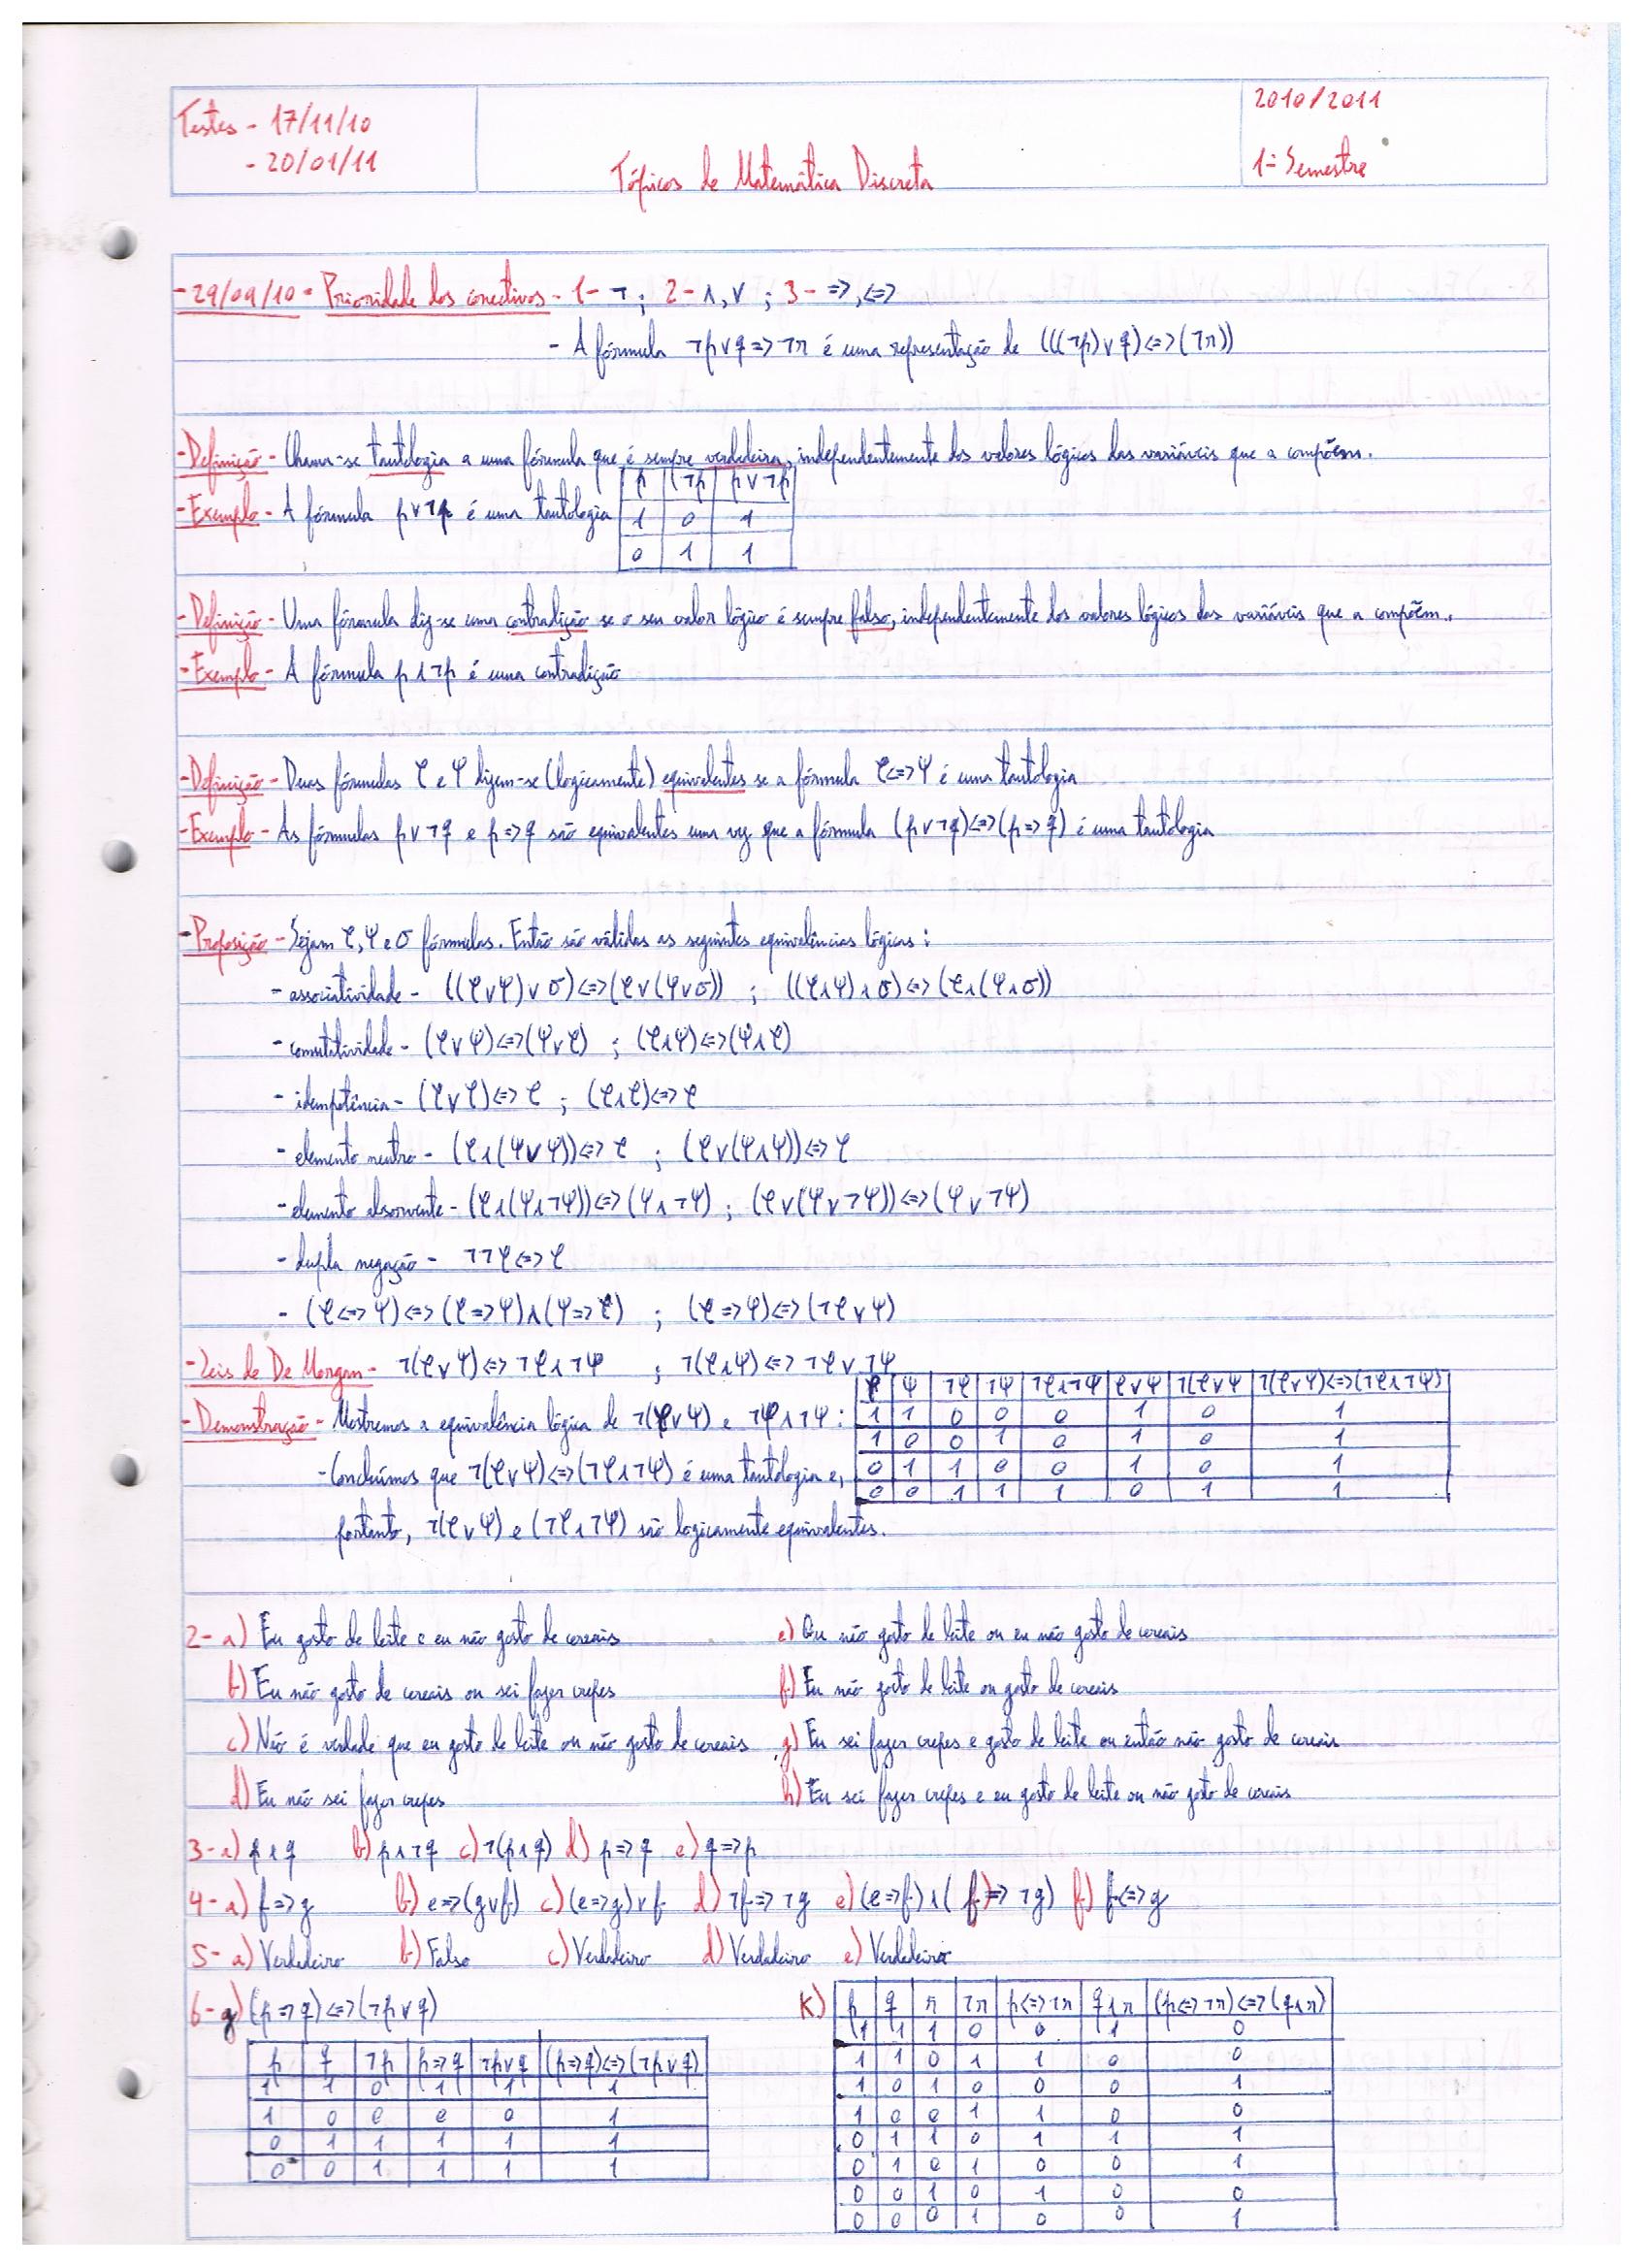 Testes - 17/11/10
- 20/01/11
Tópicos de Matemática Discreta
2010/2011
1º Semestre
- 29/09/10 - Prioridade dos conectivos - 1- ¬ ; 2- ∧, ∨ ; 3- =>, <=>
- A fórmula ¬p∨q => ¬r é uma representação de (((¬p)∨q)<=>(¬r))
- Definição - Chama-se tautologia a uma fórmula que é sempre verdadeira, independentemente dos valores lógicos das variáveis que a compõem.
- Exemplo - A fórmula p∨¬p é uma tautologia
p | ¬p | p∨¬p
1 | 0 | 1
0 | 1 | 1
- Definição - Uma fórmula diz-se uma contradição se o seu valor lógico é sempre falso, independentemente dos valores lógicos das variáveis que a compõem.
- Exemplo - A fórmula p∧¬p é uma contradição
- Definição - Duas fórmulas φ e ψ dizem-se (logicamente) equivalentes se a fórmula φ<=>ψ é uma tautologia
- Exemplo - As fórmulas p∨¬q e p=>q são equivalentes uma vez que a fórmula (p∨¬q)<=>(p=>q) é uma tautologia
- Proposição - Sejam φ, ψ e σ fórmulas. Então são válidas as seguintes equivalências lógicas:
- associatividade - ((φ∨ψ)∨σ)<=>(φ∨(ψ∨σ)) ; ((φ∧ψ)∧σ)<=>(φ∧(ψ∧σ))
- comutatividade - (φ∨ψ)<=>(ψ∨φ) ; (φ∧ψ)<=>(ψ∧φ)
- idempotência - (φ∨φ)<=>φ ; (φ∧φ)<=>φ
- elemento neutro - (φ∧(ψ∨ψ))<=>φ ; (φ∨(ψ∧ψ))<=>φ
- elemento absorvente - (φ∧(ψ∧¬ψ))<=>(ψ∧¬ψ) ; (φ∨(ψ∨¬ψ))<=>(ψ∨¬ψ)
- dupla negação - ¬¬φ<=>φ
- (φ<=>ψ)<=>(φ=>ψ)∧(ψ=>φ) ; (φ=>ψ)<=>(¬φ∨ψ)
- Leis de De Morgan - ¬(φ∨ψ)<=>¬φ∧¬ψ ; ¬(φ∧ψ)<=>¬φ∨¬ψ
- Demonstração - Mostremos a equivalência lógica de ¬(φ∨ψ) e ¬φ∧¬ψ:
- Concluímos que ¬(φ∨ψ)<=>(¬φ∧¬ψ) é uma tautologia e,
portanto, ¬(φ∨ψ) e (¬φ∧¬ψ) são logicamente equivalentes.
φ | ψ | ¬φ | ¬ψ | ¬φ∧¬ψ | φ∨ψ | ¬(φ∨ψ | ¬(φ∨ψ)<=>(¬φ∧¬ψ)
1 | 1 | 0 | 0 | 0 | 1 | 0 | 1
1 | 0 | 0 | 1 | 0 | 1 | 0 | 1
0 | 1 | 1 | 0 | 0 | 1 | 0 | 1
0 | 0 | 1 | 1 | 1 | 0 | 1 | 1
2- a) Eu gosto de leite e eu não gosto de cereais
b) Eu não gosto de cereais ou sei fazer crepes
c) Não é verdade que eu gosto de leite ou não gosto de cereais
d) Eu não sei fazer crepes
e) Ou não gosto de leite ou eu não gosto de cereais
f) Eu não gosto de leite ou gosto de cereais
g) Eu sei fazer crepes e gosto de leite ou então não gosto de cereais
h) Eu sei fazer crepes e eu gosto de leite ou não gosto de cereais
3- a) p∧q b) p∧¬q c) ¬(p∧q) d) p=>q e) q=>p
4- a) f=>g b) e=>(g∨f) c) (e=>g)∨f d) ¬f=>¬g e) (e=>f)∧(f=>¬g) f) f<=>g
5- a) Verdadeiro b) Falso c) Verdadeiro d) Verdadeiro e) Verdadeiro
6- g) (p=>q)<=>(¬p∨q)
p | q | ¬p | p=>q | ¬p∨q | (p=>q)<=>(¬p∨q)
1 | 1 | 0 | 1 | 1 | 1
1 | 0 | 0 | 0 | 0 | 1
0 | 1 | 1 | 1 | 1 | 1
0 | 0 | 1 | 1 | 1 | 1
k) p | q | r | ¬r | p<=>¬r | q∧r | (p<=>¬r)<=>(q∧r)
1 | 1 | 1 | 0 | 0 | 1 | 0
1 | 1 | 0 | 1 | 1 | 0 | 0
1 | 0 | 1 | 0 | 0 | 0 | 1
1 | 0 | 0 | 1 | 1 | 0 | 0
0 | 1 | 1 | 0 | 1 | 1 | 1
0 | 1 | 0 | 1 | 0 | 0 | 1
0 | 0 | 1 | 0 | 1 | 0 | 0
0 | 0 | 0 | 1 | 0 | 0 | 1